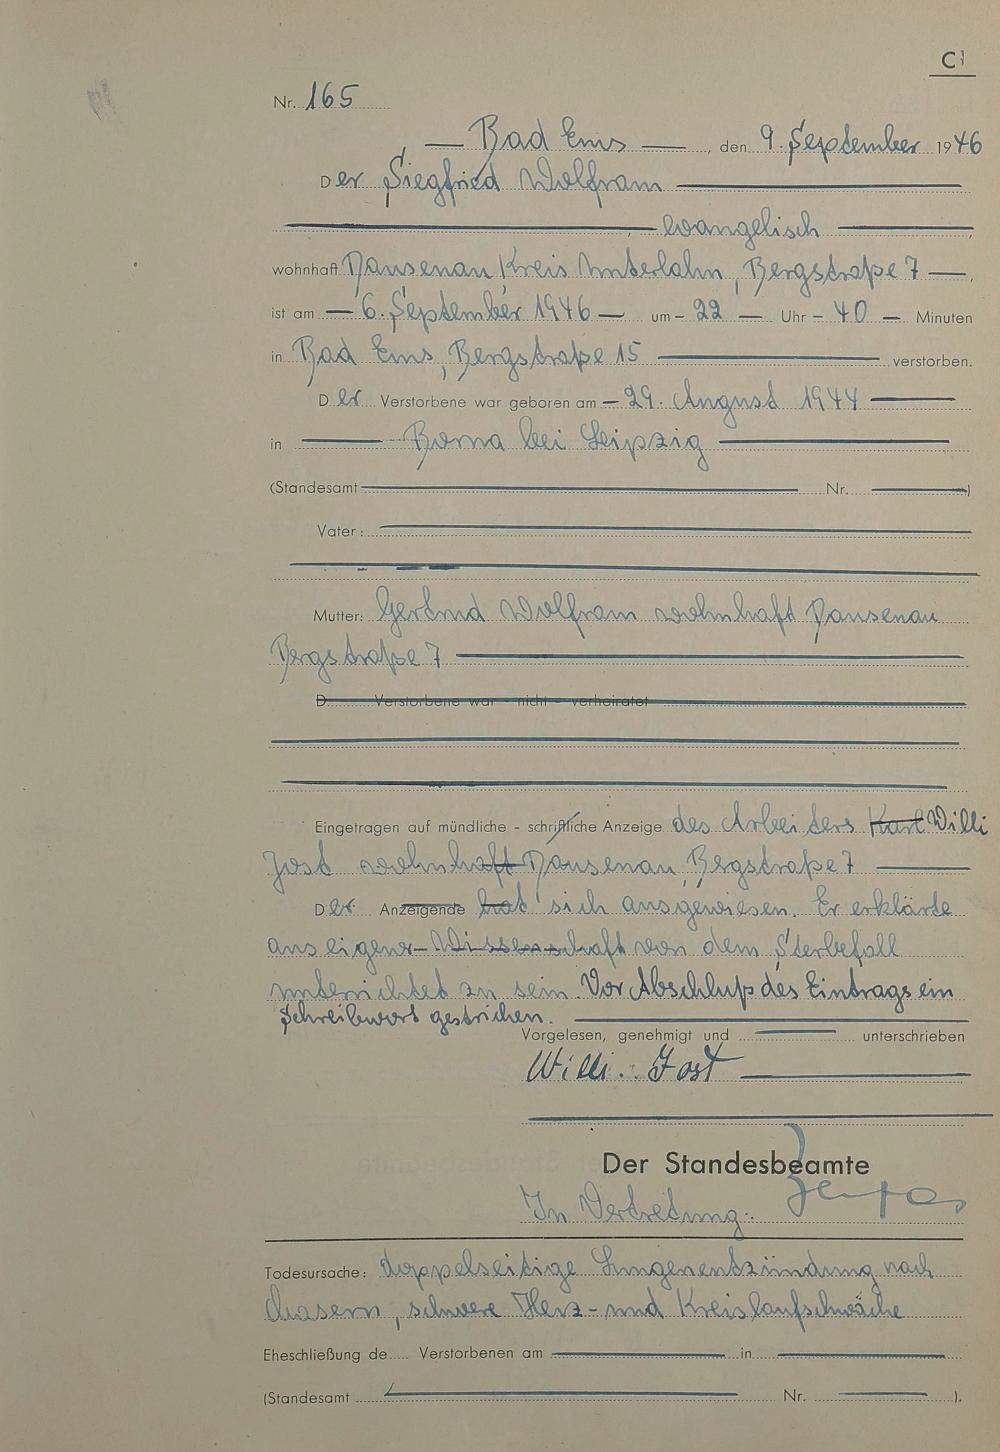 C1
Nr. 165
Bad Ems, den 9. September 1946
Der Siegfried Wolfram
evangelisch,
wohnhaft Dausenau, Kreis Unterlahn, Bergstraße 7,
ist am 6. September 1946 um 22 Uhr 40 Minuten
in Bad Ems, Bergstraße 15 verstorben.
Der Verstorbene war geboren am 29. August 1944
in Borna bei Leipzig
(Standesamt Nr. )
Vater:
Mutter: Gertrud Wolfram wohnhaft Dausenau
Bergstraße 7
D Verstorbene war - nicht - verheiratet
Eingetragen auf mündliche - schriftliche Anzeige des Arbeiters Karl Willi
Jost wohnhaft Dausenau, Bergstraße 7
Der Anzeigende hat sich ausgewiesen. Er erklärte
aus eigener Wissenschaft von dem Sterbefall
unterrichtet zu sein. Vor Abschluß des Eintrags ein
Schreibwort gestrichen.
Vorgelesen, genehmigt und unterschrieben
Willi Jost
Der Standesbeamte
In Vertretung:
Todesursache: doppelseitige Lungenentzündung nach
Masern, schwere Herz- und Kreislaufschwäche
Eheschließung de Verstorbenen am in
(Standesamt Nr. ).